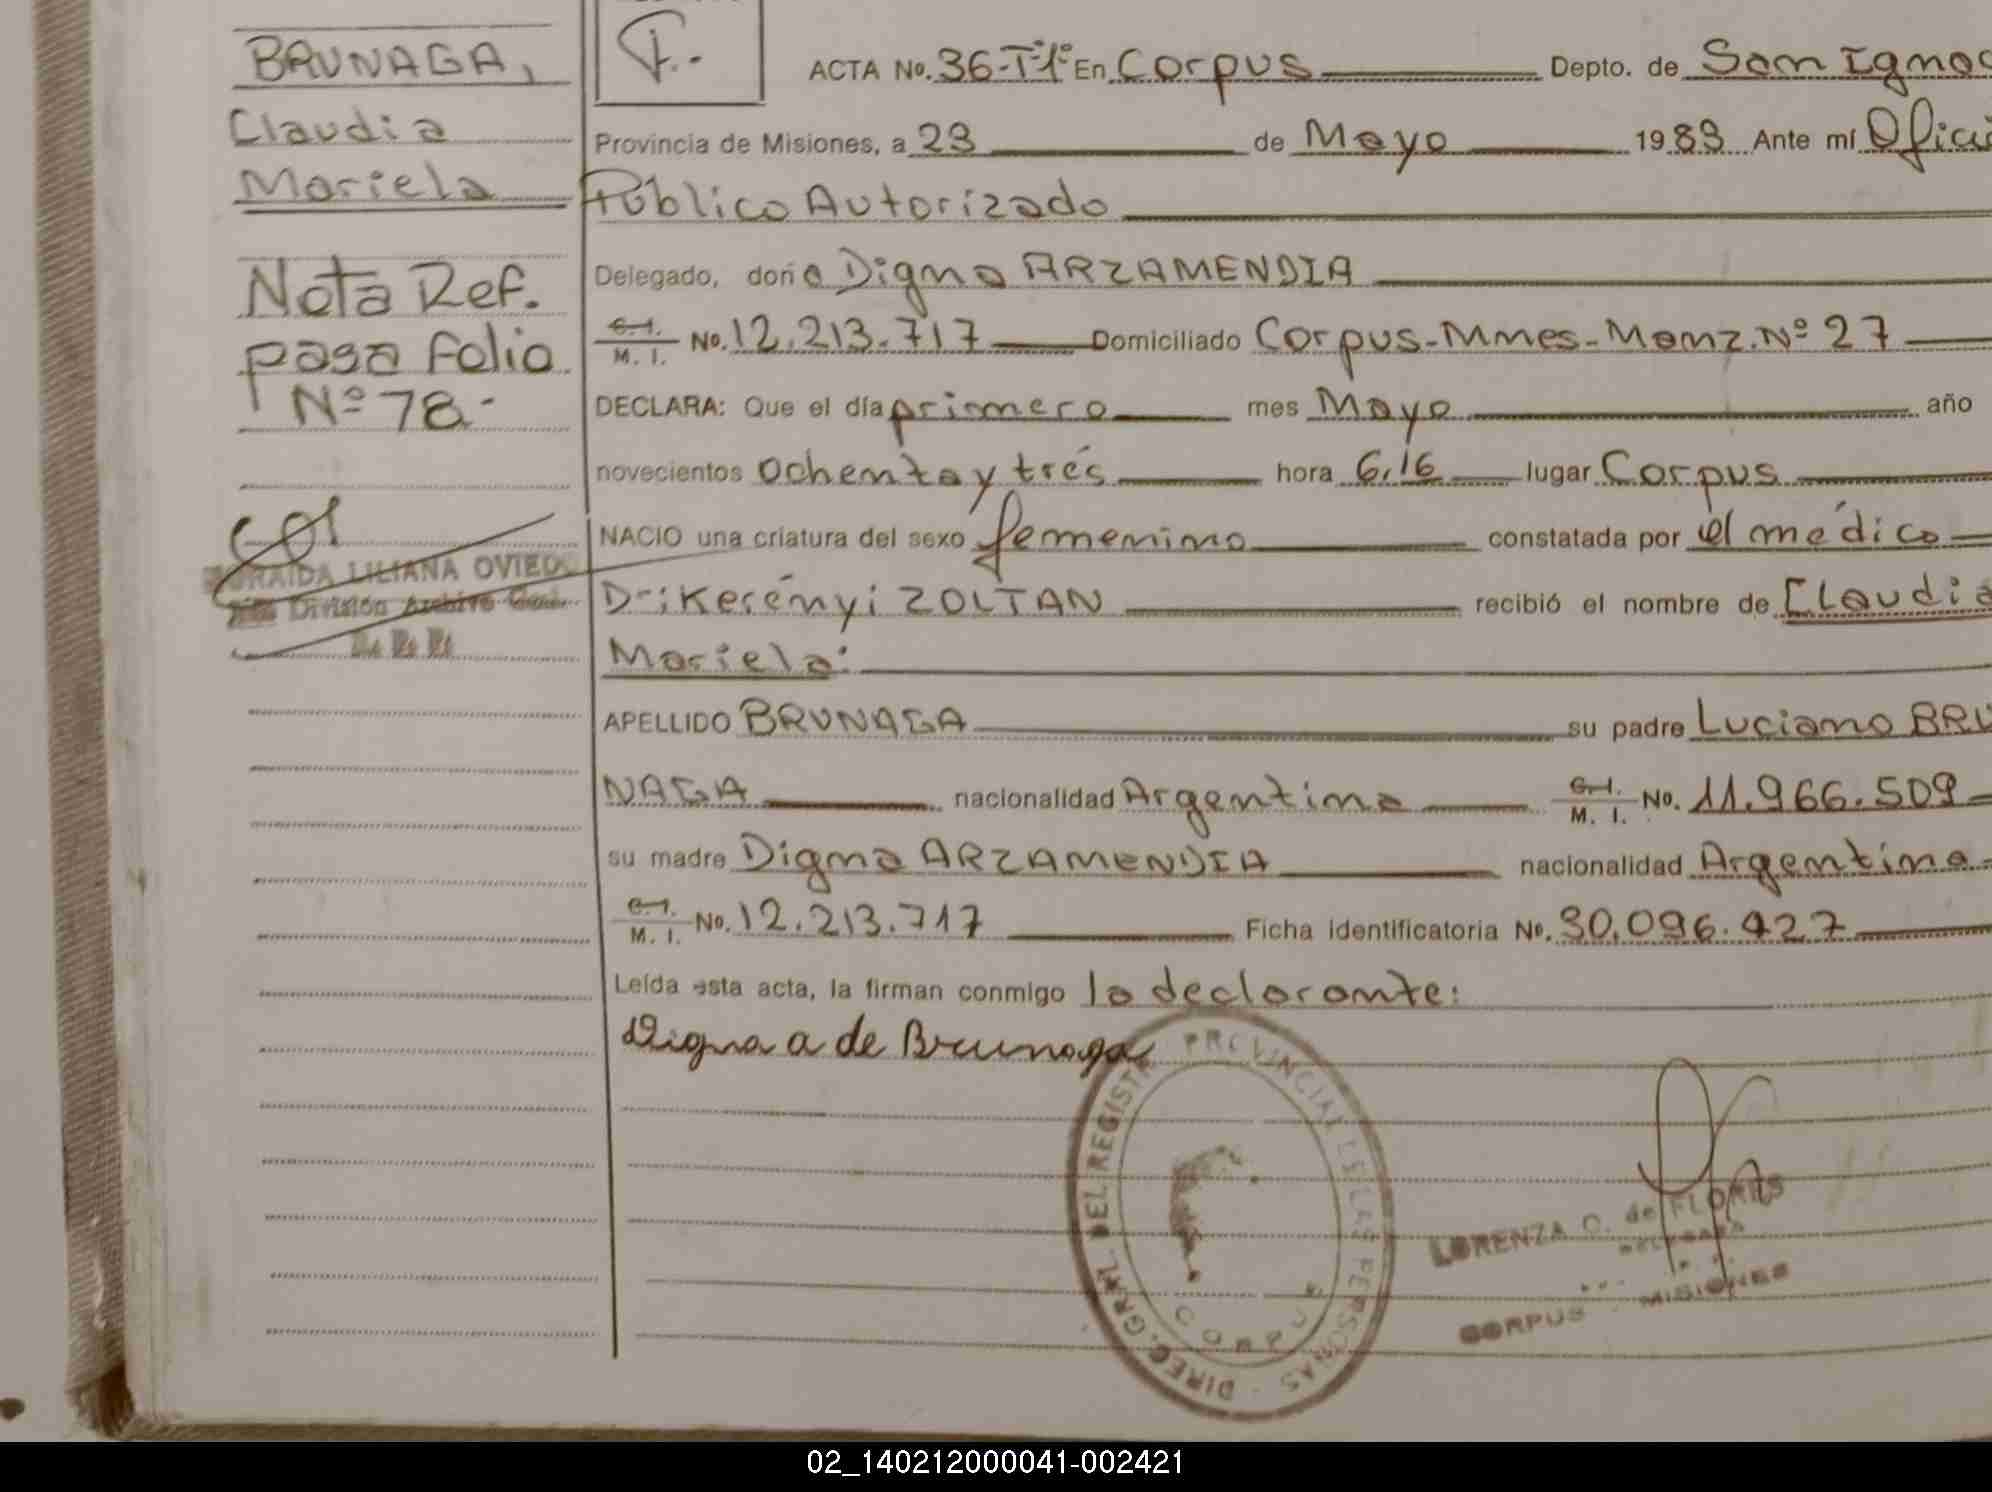 BRUNAGA,
Claudia
Mariela
Nota Ref.
pasa folio
Nº 78.-
LILIANA OVIEDO
División Archivo Gral.
F.-
ACTA No. 36-Tº1º En Corpus Depto. de San Ignac
Provincia de Misiones, a 23 de Mayo 1983 Ante mí Ofici
Público Autorizado
Delegado, doña Digna ARZAMENDIA
C.I. M. I. No. 12.213.717 Domiciliado Corpus-Mnes-Manz.Nº 27
DECLARA: Que el día primero mes Mayo año
novecientos ochenta y trés hora 6,16 lugar Corpus
NACIO una criatura del sexo femenino constatada por el médico
Dr: Kerényi ZOLTAN recibió el nombre de Claudia
Mariela:
APELLIDO BRUNAGA su padre Luciano BRU
NAGA nacionalidad Argentina C.I. M. I. No. 11.966.509
su madre Digna ARZAMENDIA nacionalidad Argentina
C.I. M. I. No. 12.213.717 Ficha identificatoria No. 30.096.427
Leída esta acta, la firman conmigo la declarante:
Digna a de Brunaga
DIREC. GRAL. DEL REGISTR PROVINCIAL DE LAS PERSONAS
CORPUS
LORENZA O. de FLORES
DELEGADA
CORPUS - MISIONES
02_140212000041-002421